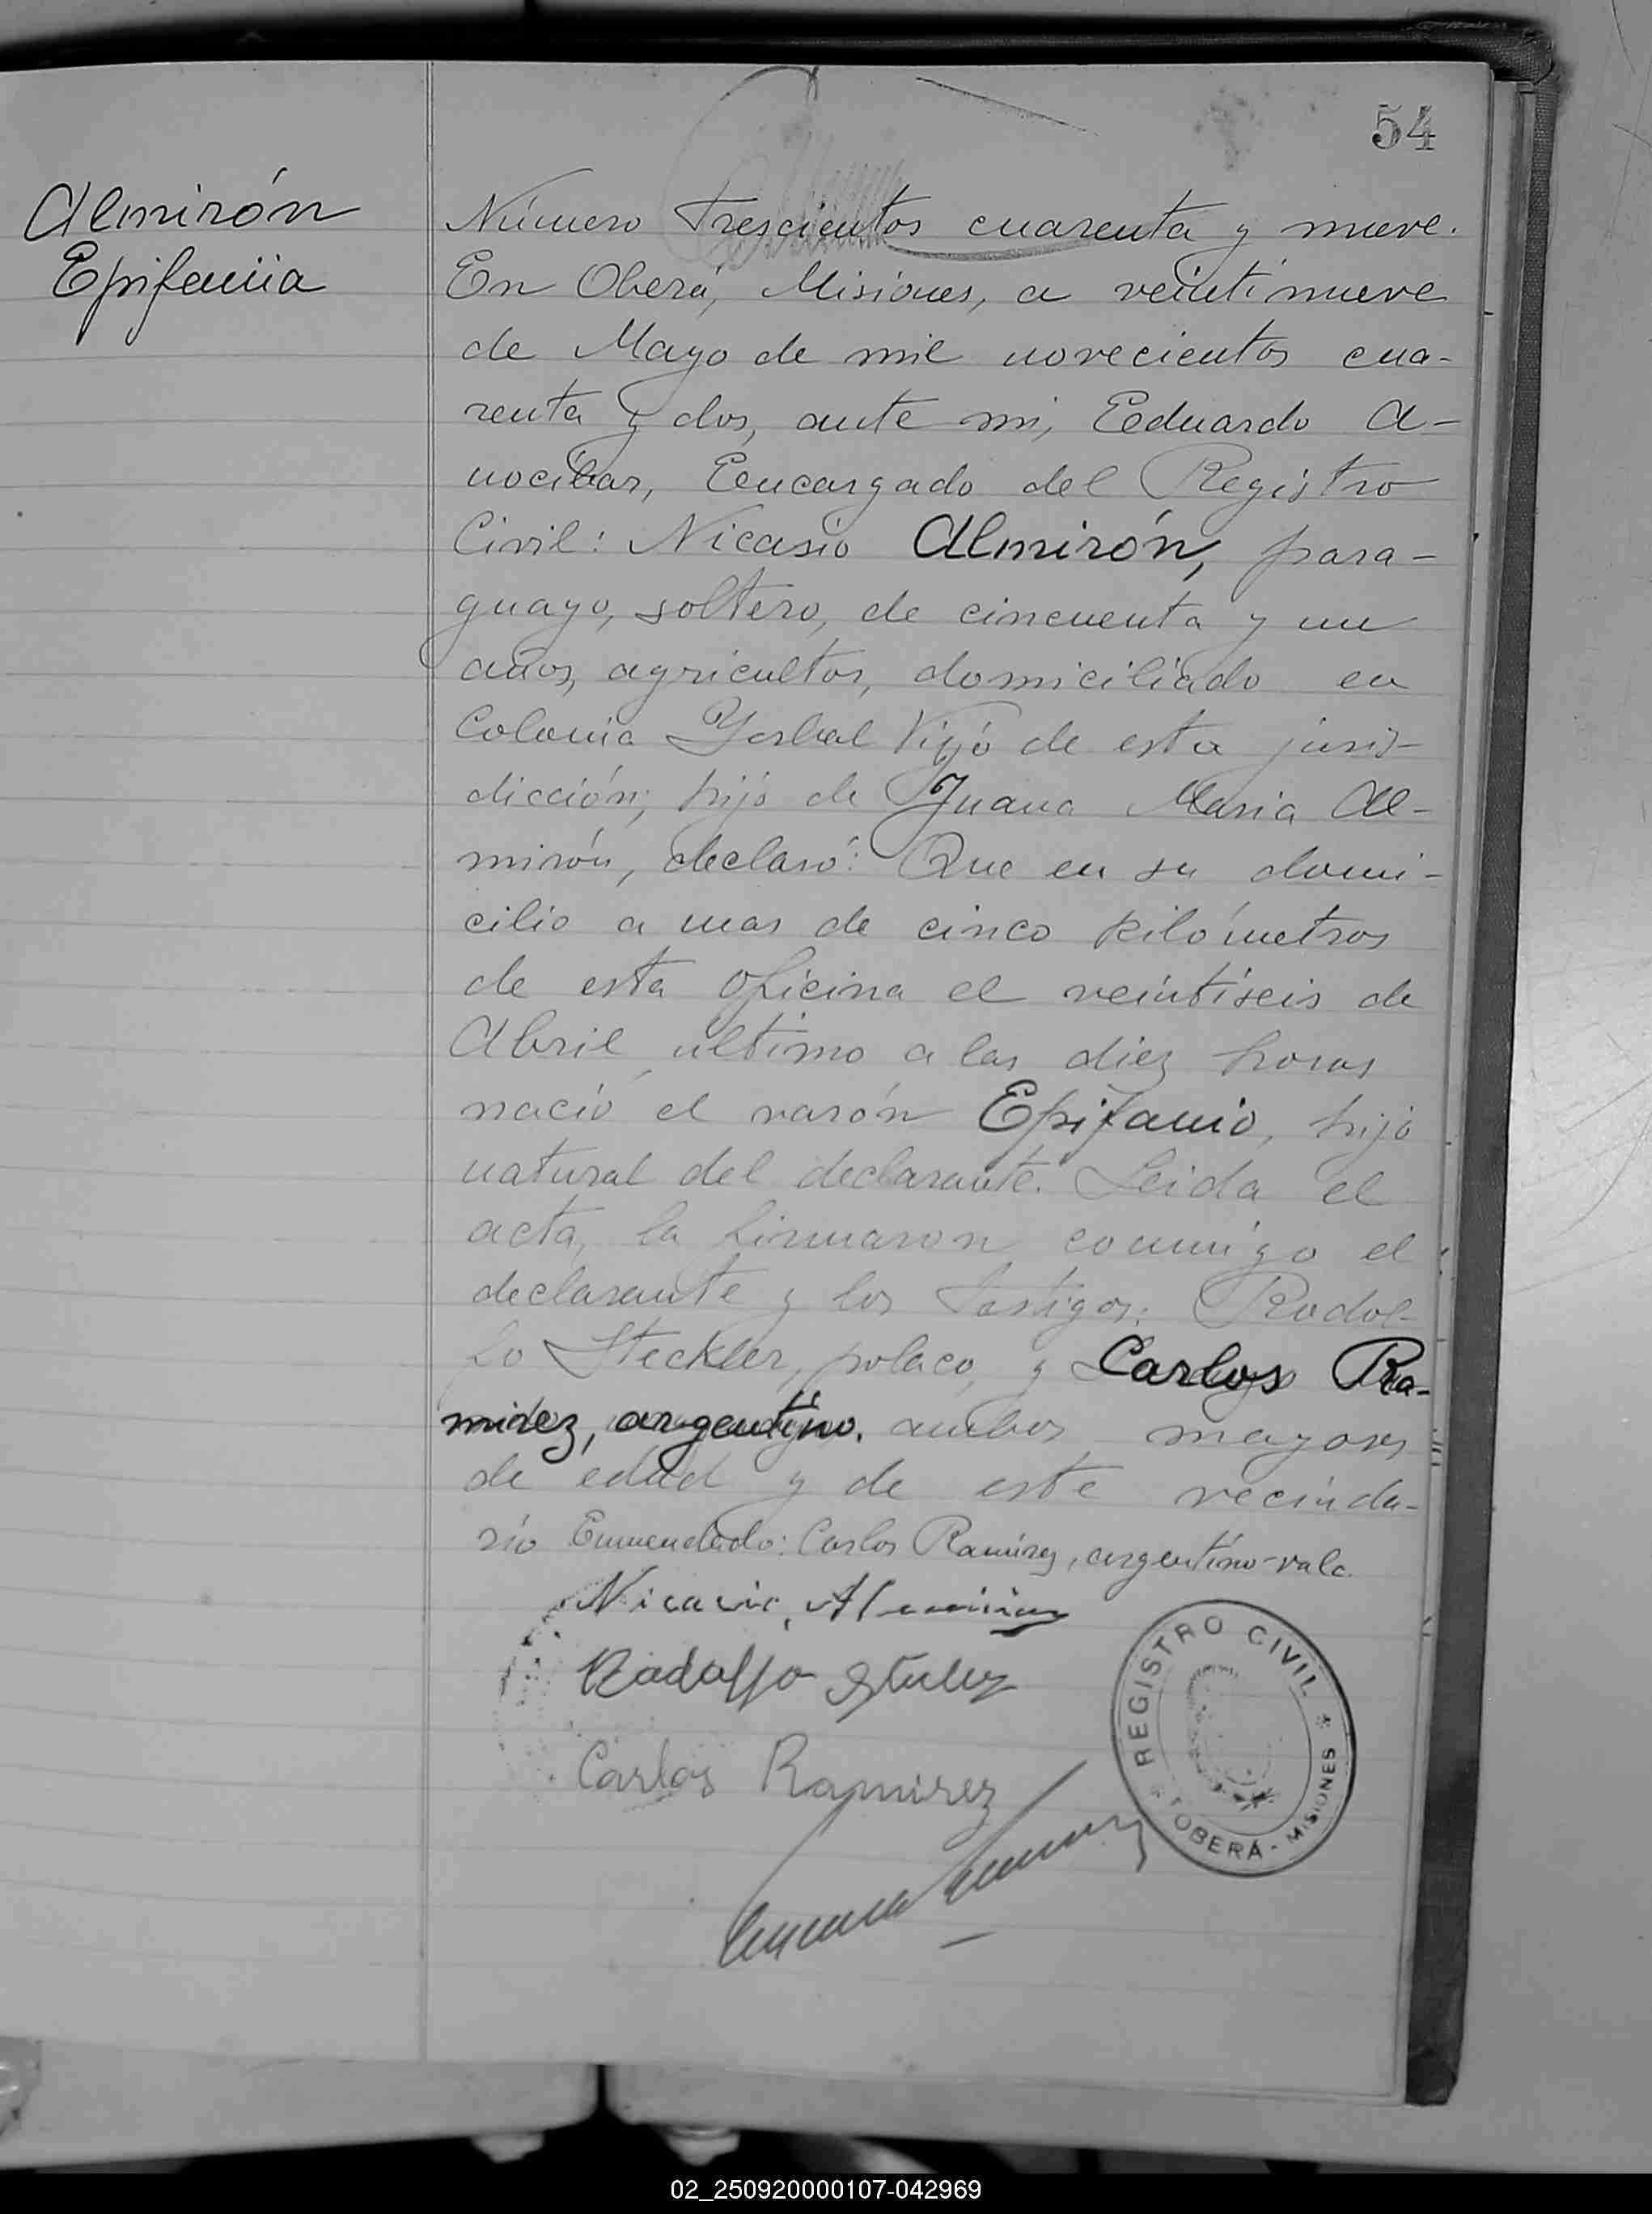 54
Almirón
Epifania
Número Trescientos cuarenta y nueve.
En Oberá, Misiones, a veintinueve
de Mayo de mil novecientos cua-
renta y dos, ante mi, Eduardo A-
nocibar, Encargado del Registro
Civil: Nicasio Almirón, para-
guayo, soltero, de cincuenta y un
años, agricultor, domiciliado en
Colonia Yerbal Viejo de esta juris-
dicción, hijo de Juana Maria Al-
mirón, declaró: Que en su domi-
cilio a mas de cinco kilómetros
de esta oficina el veintiseis de
Abril último a las diez horas
nació el varón Epifanio, hijo
natural del declarante. Leida el
acta, la firmaron conmigo el
declarante y los testigos: Rodol-
fo Steckler, polaco, y Carlos Ra-
mirez, argentino. ambos mayores
de edad y de este vecinda-
rio Enmendado: Carlos Ramirez, argentino-vale.
Nicasio Almirón
Rodolfo
Carlos Ramirez
REGISTRO CIVIL
OBERÁ - MISIONES
02_250920000107-042969